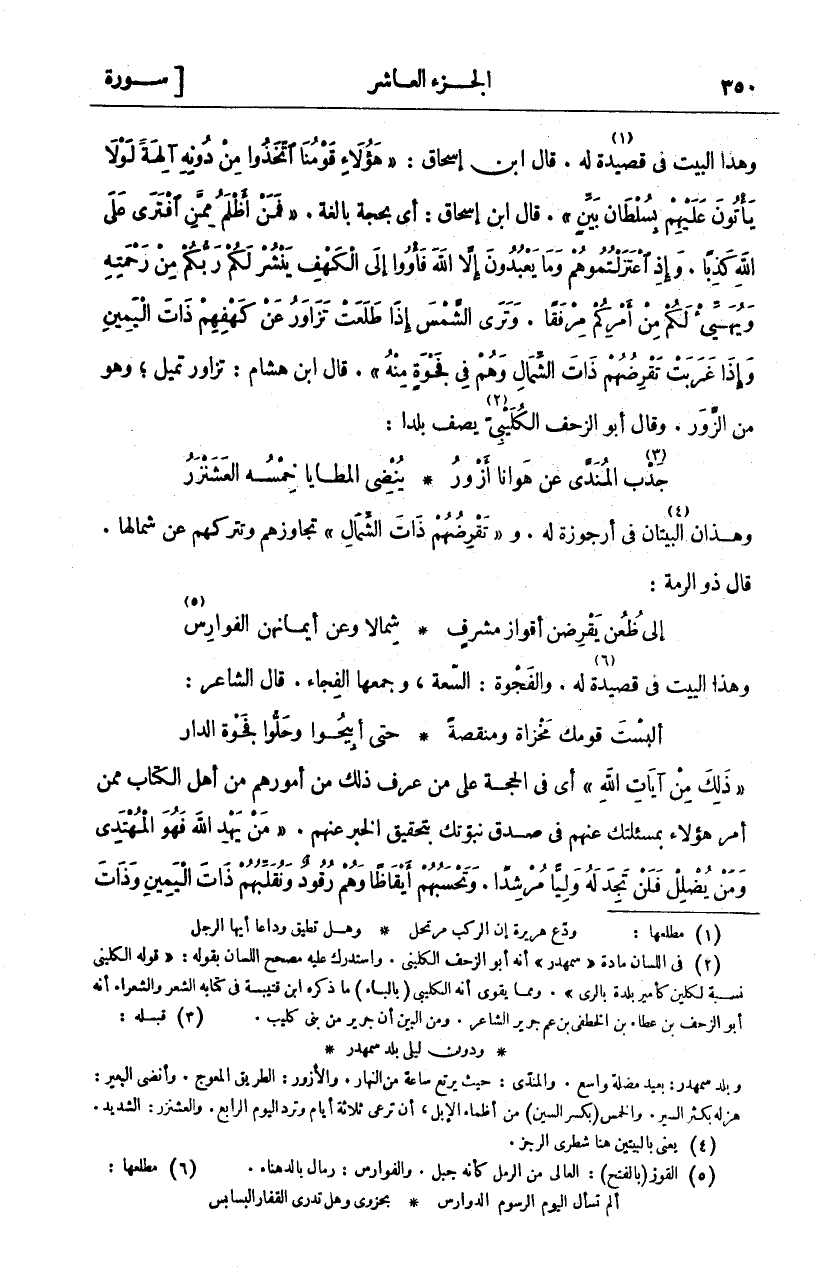 ٣٥٠ الجزء العاشر [ ســورة
وهذا البيت فى قصيدة له (١) . قال ابن إسحاق : « هَؤُلَاءِ قَوْمُنَا ٱتَّخَذُوا مِنْ دُونِهِ آلِهَةً لَوْلَا
يَأْتُونَ عَلَيْهِمْ بِسُلْطَانٍ بَيِّنٍ » . قال ابن إسحاق : أى بحجة بالغة . « فَمَنْ أَظْلَمُ مِمَّنِ ٱفْتَرَى عَلَى
اللهِ كَذِبًا . وَإِذِ ٱعْتَزَلْتُمُوهُمْ وَمَا يَعْبُدُونَ إِلَّا اللهَ فَأْوُوا إِلَى الْكَهْفِ يَنْشُرْ لَكُمْ رَبُّكُمْ مِنْ رَحْمَتِهِ
وَيُهَيِّئْ لَكُمْ مِنْ أَمْرِكُمْ مِرْفَقًا . وَتَرَى الشَّمْسَ إِذَا طَلَعَتْ تَزَاوَرُ عَنْ كَهْفِهِمْ ذَاتَ الْيَمِينِ
وَإِذَا غَرَبَتْ تَقْرِضُهُمْ ذَاتَ الشِّمَالِ وَهُمْ فِي فَجْوَةٍ مِنْهُ » . قال ابن هشام : تزاور تميل ؛ وهو
من الزَّوَر . وقال أبو الزحف الكُلَيْبِىّ (٢) يصف بلدا :
جَدْب المُنَدَّى (٣) عن هَوانا أَزْوَرُ * يُنْضِى المطـايا خِمْسُـه العَشَنْزَرُ
وهـذان البيتان (٤) فى أرجوزة له . و « تَقْرِضُهُمْ ذَاتَ الشِّمَالِ » تجاوزهم وتتركهم عن شمالها .
قال ذو الرمة :
إلى ظُعُن يَقْرِضن أقواز مشرفٍ * شِمالا وعن أيمـانهن الفوارِسُ (٥)
وهذا البيت فى قصيدة له (٦) . والفَجْوة : السَّعة ، وجمعها الفِجاء . قال الشاعر :
ألبسْتَ قومك مَخْزاة ومنقصةً * حتى أُبِيحُـوا وحَلُّوا فَجْوة الدار
« ذَلِكَ مِنْ آيَاتِ اللهِ » أى فى الحجـة على من عرف ذلك من أمورهم من أهل الكتاب ممن
أمر هؤلاء بمسئلتك عنهم فى صـدق نبوّتك بتحقيق الخبر عنهم . « مَنْ يَهْدِ اللهُ فَهُوَ الْمُهْتَدِى
وَمَنْ يُضْلِلْ فَلَنْ تَجِدَ لَهُ وَلِيًّا مُرْشِدًا . وَتَحْسَبُهُمْ أَيْقَاظًا وَهُمْ رُقُودٌ وَنُقَلِّبُهُمْ ذَاتَ الْيَمِينِ وَذَاتَ
(١) مطلعها : ودّع هريرة إن الركب مرتحل * وهـل تطيق وداعا أيها الرجل
(٢) فى اللسان مادة « سمهدر » أنه أبو الزحف الكلينى . واستدرك عليه مصحح اللسان بقوله : « قوله الكلينى
نسبة لكلين كأمير بلدة بالرى » . وممـا يقوى أنه الكليبى (بالباء) ما ذكره ابن قتيبـة فى كتابه الشعر والشعراء أنه
أبو الزحف بن عطاء بن الخطفى بن عم جرير الشاعر . ومن البين أن جرير من بنى كليب . (٣) قبـله :
* ودون ليلى بلد سمهدر *
وبلد سمهدر : بعيد مضلة واسع . والمندّى : حيث يرتع ساعة من النهار . والأزور : الطريق المعوج . وأنضى البعير :
هزله بكثر السير . والخمس (بكسر السين) من أظماء الإبل ، أن ترعى ثلاثة أيام وترد اليوم الرابع . والعشنزر : الشديد .
(٤) يعنى بالبيتين هنا شطرى الرجز .
(٥) القوز (بالفتح) : العالى من الرمل كأنه جبل . والفوارس : رمال بالدهناء . (٦) مطلعها :
ألم تسأل اليوم الرسوم الدوارس * بحزوى وهل تدرى القفار البسابس